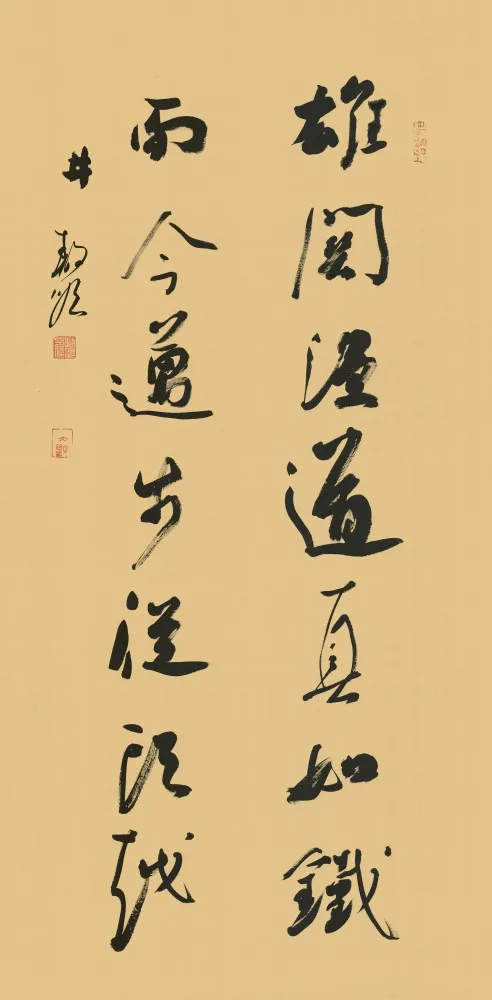 雄関漫道真如鐵
而今邁步從頭越
井